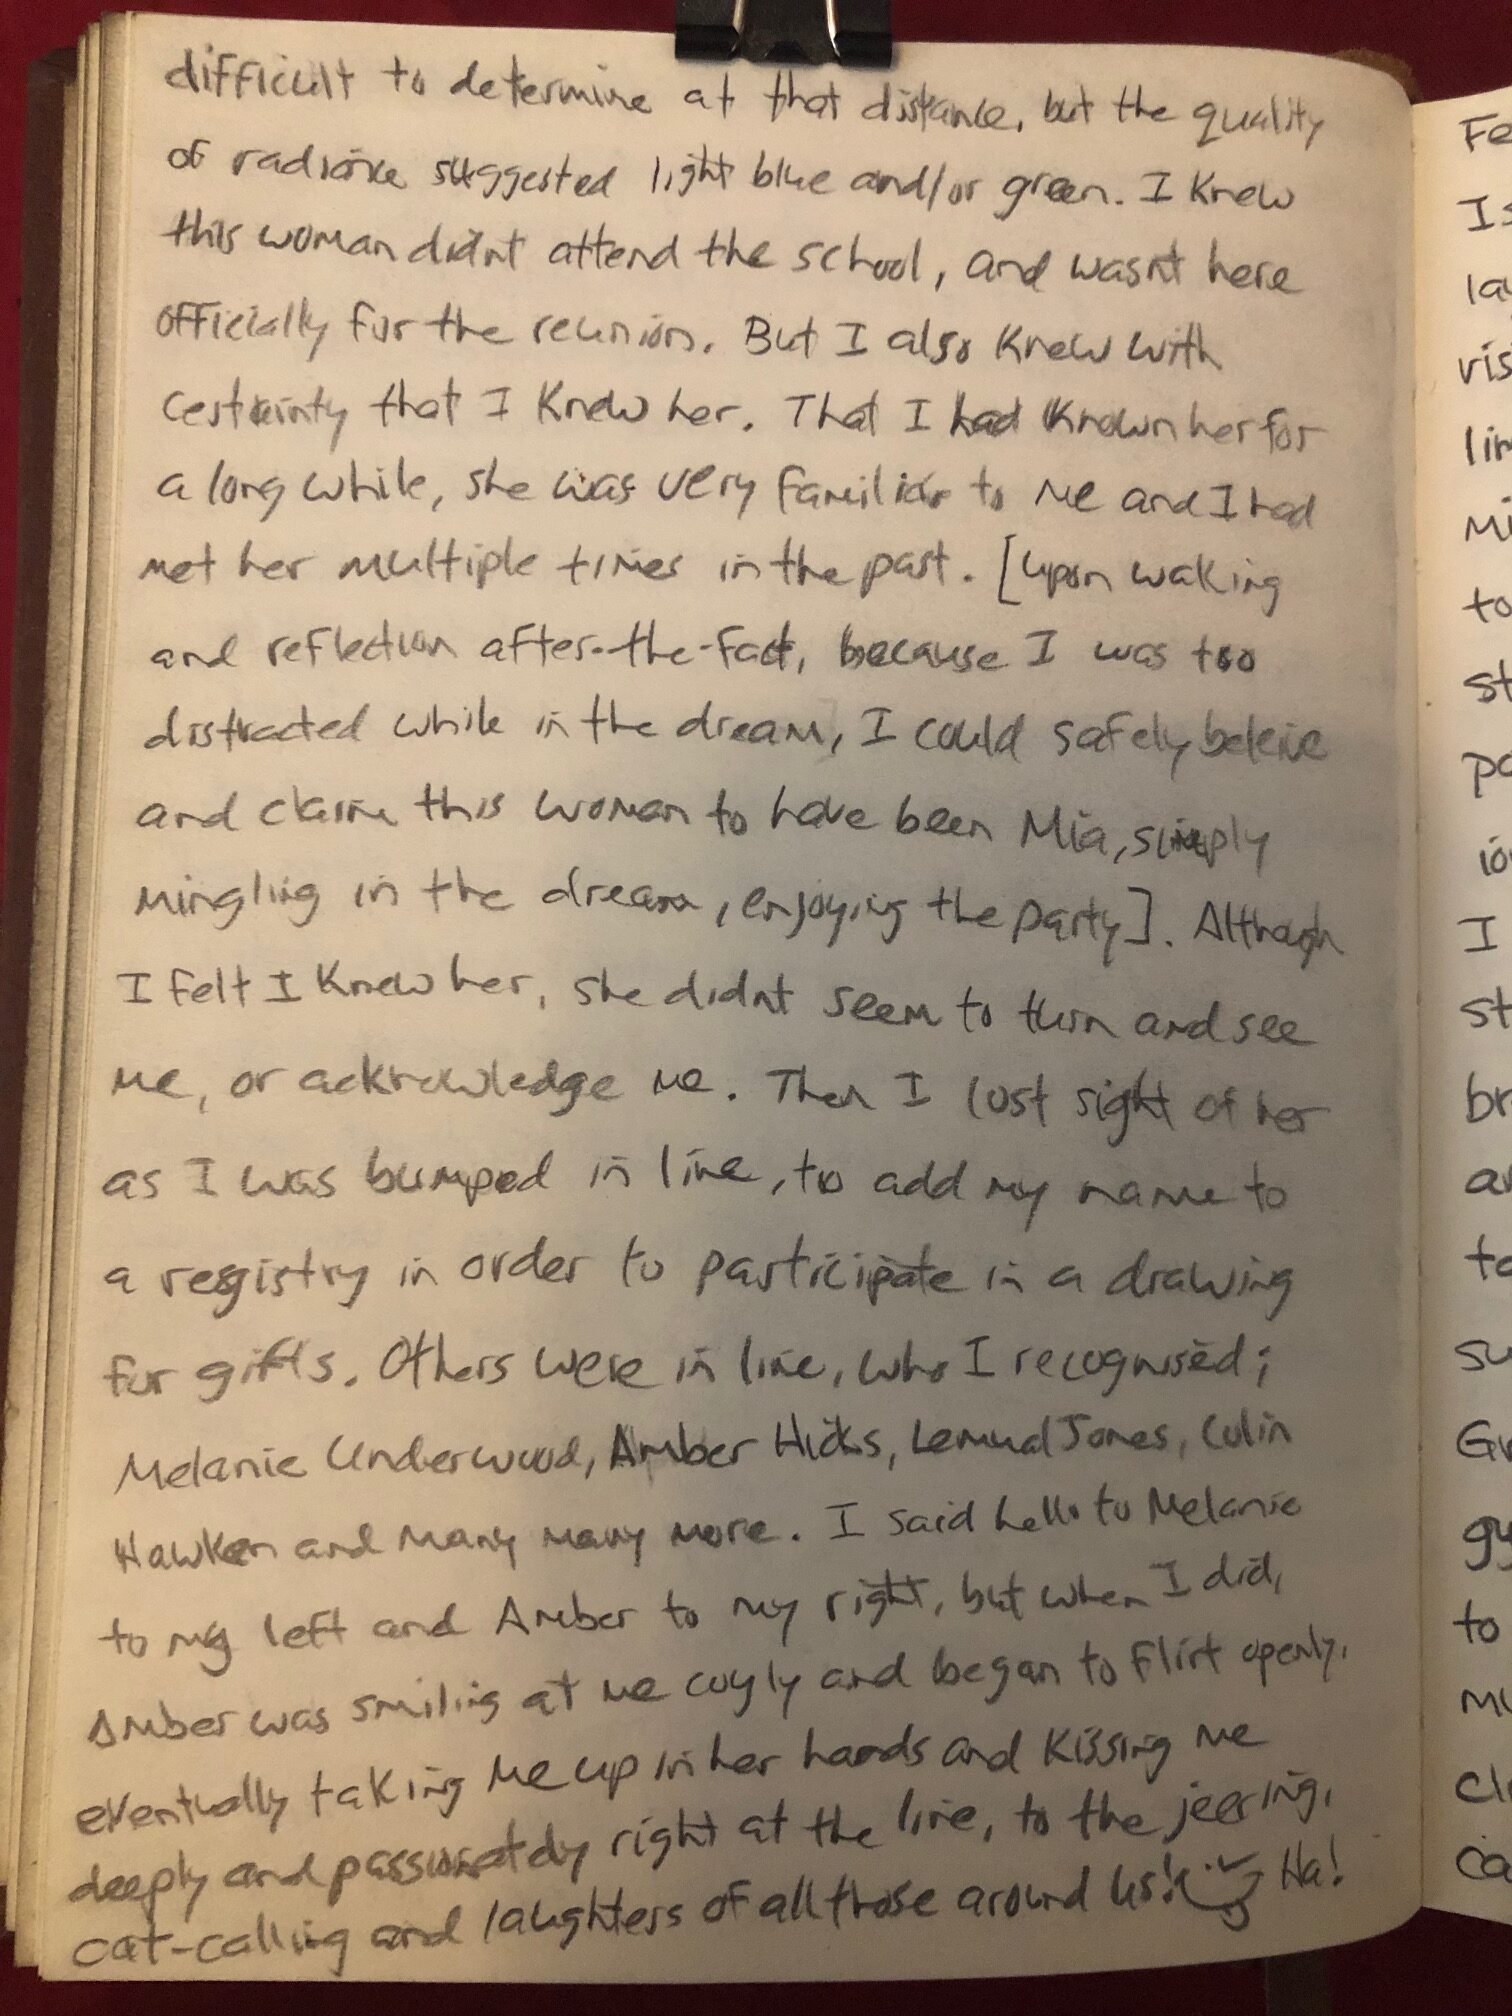 difficult to determine at that distance, but the quality
of radiance suggested light blue and/or green. I knew
this woman didnt attend the school, and wasnt here
officially for the reunion. But I also knew with
certainty that I knew her. That I had known her for
a long while, she was very familiar to me and I had
met her multiple times in the past. [upon waking
and reflection after-the-fact, because I was too
distracted while in the dream, I could safely beleive
and claim this woman to have been Mia, simply
mingling in the dream, enjoying the party]. Although
I felt I knew her, she didnt seem to turn and see
me, or acknowledge me. Then I lost sight of her
as I was bumped in line, to add my name to
a registry in order to participate in a drawing
for gifts. Others were in line, who I recognised;
Melanie Underwood, Amber Hicks, Lemual Jones, Colin
Hawken and many many more. I said hello to Melanie
to my left and Amber to my right, but when I did,
Amber was smiling at me coyly and began to flirt openly,
eventually taking me up in her hands and kissing me
deeply and passionately right at the line, to the jeering,
cat-calling and laughters of all those around us! Ha!
Fe
Is
la
vis
lin
Mi
to
st
po
io
I
st
br
a
to
su
G
gy
to
mu
cl
ca